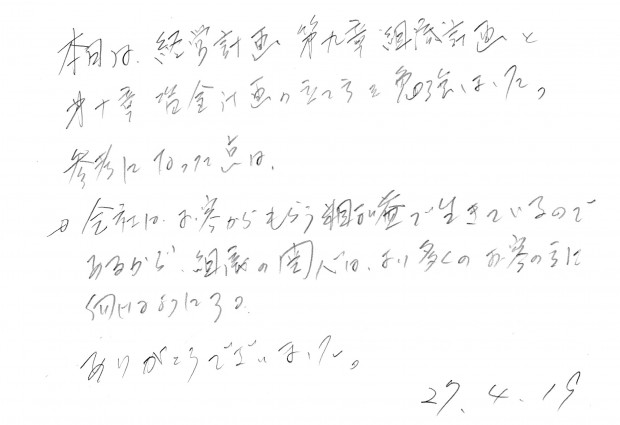 本日は、経営計画 第九章 組織計画と
第十章 資金計画の立て方を勉強しました。
参考になった点は、
会社は、お客からもらう粗利益で生きているので
あるから、組織の関心は、より多くのお客の方に
向けるようにする。
ありがとうございました。
27.4.19